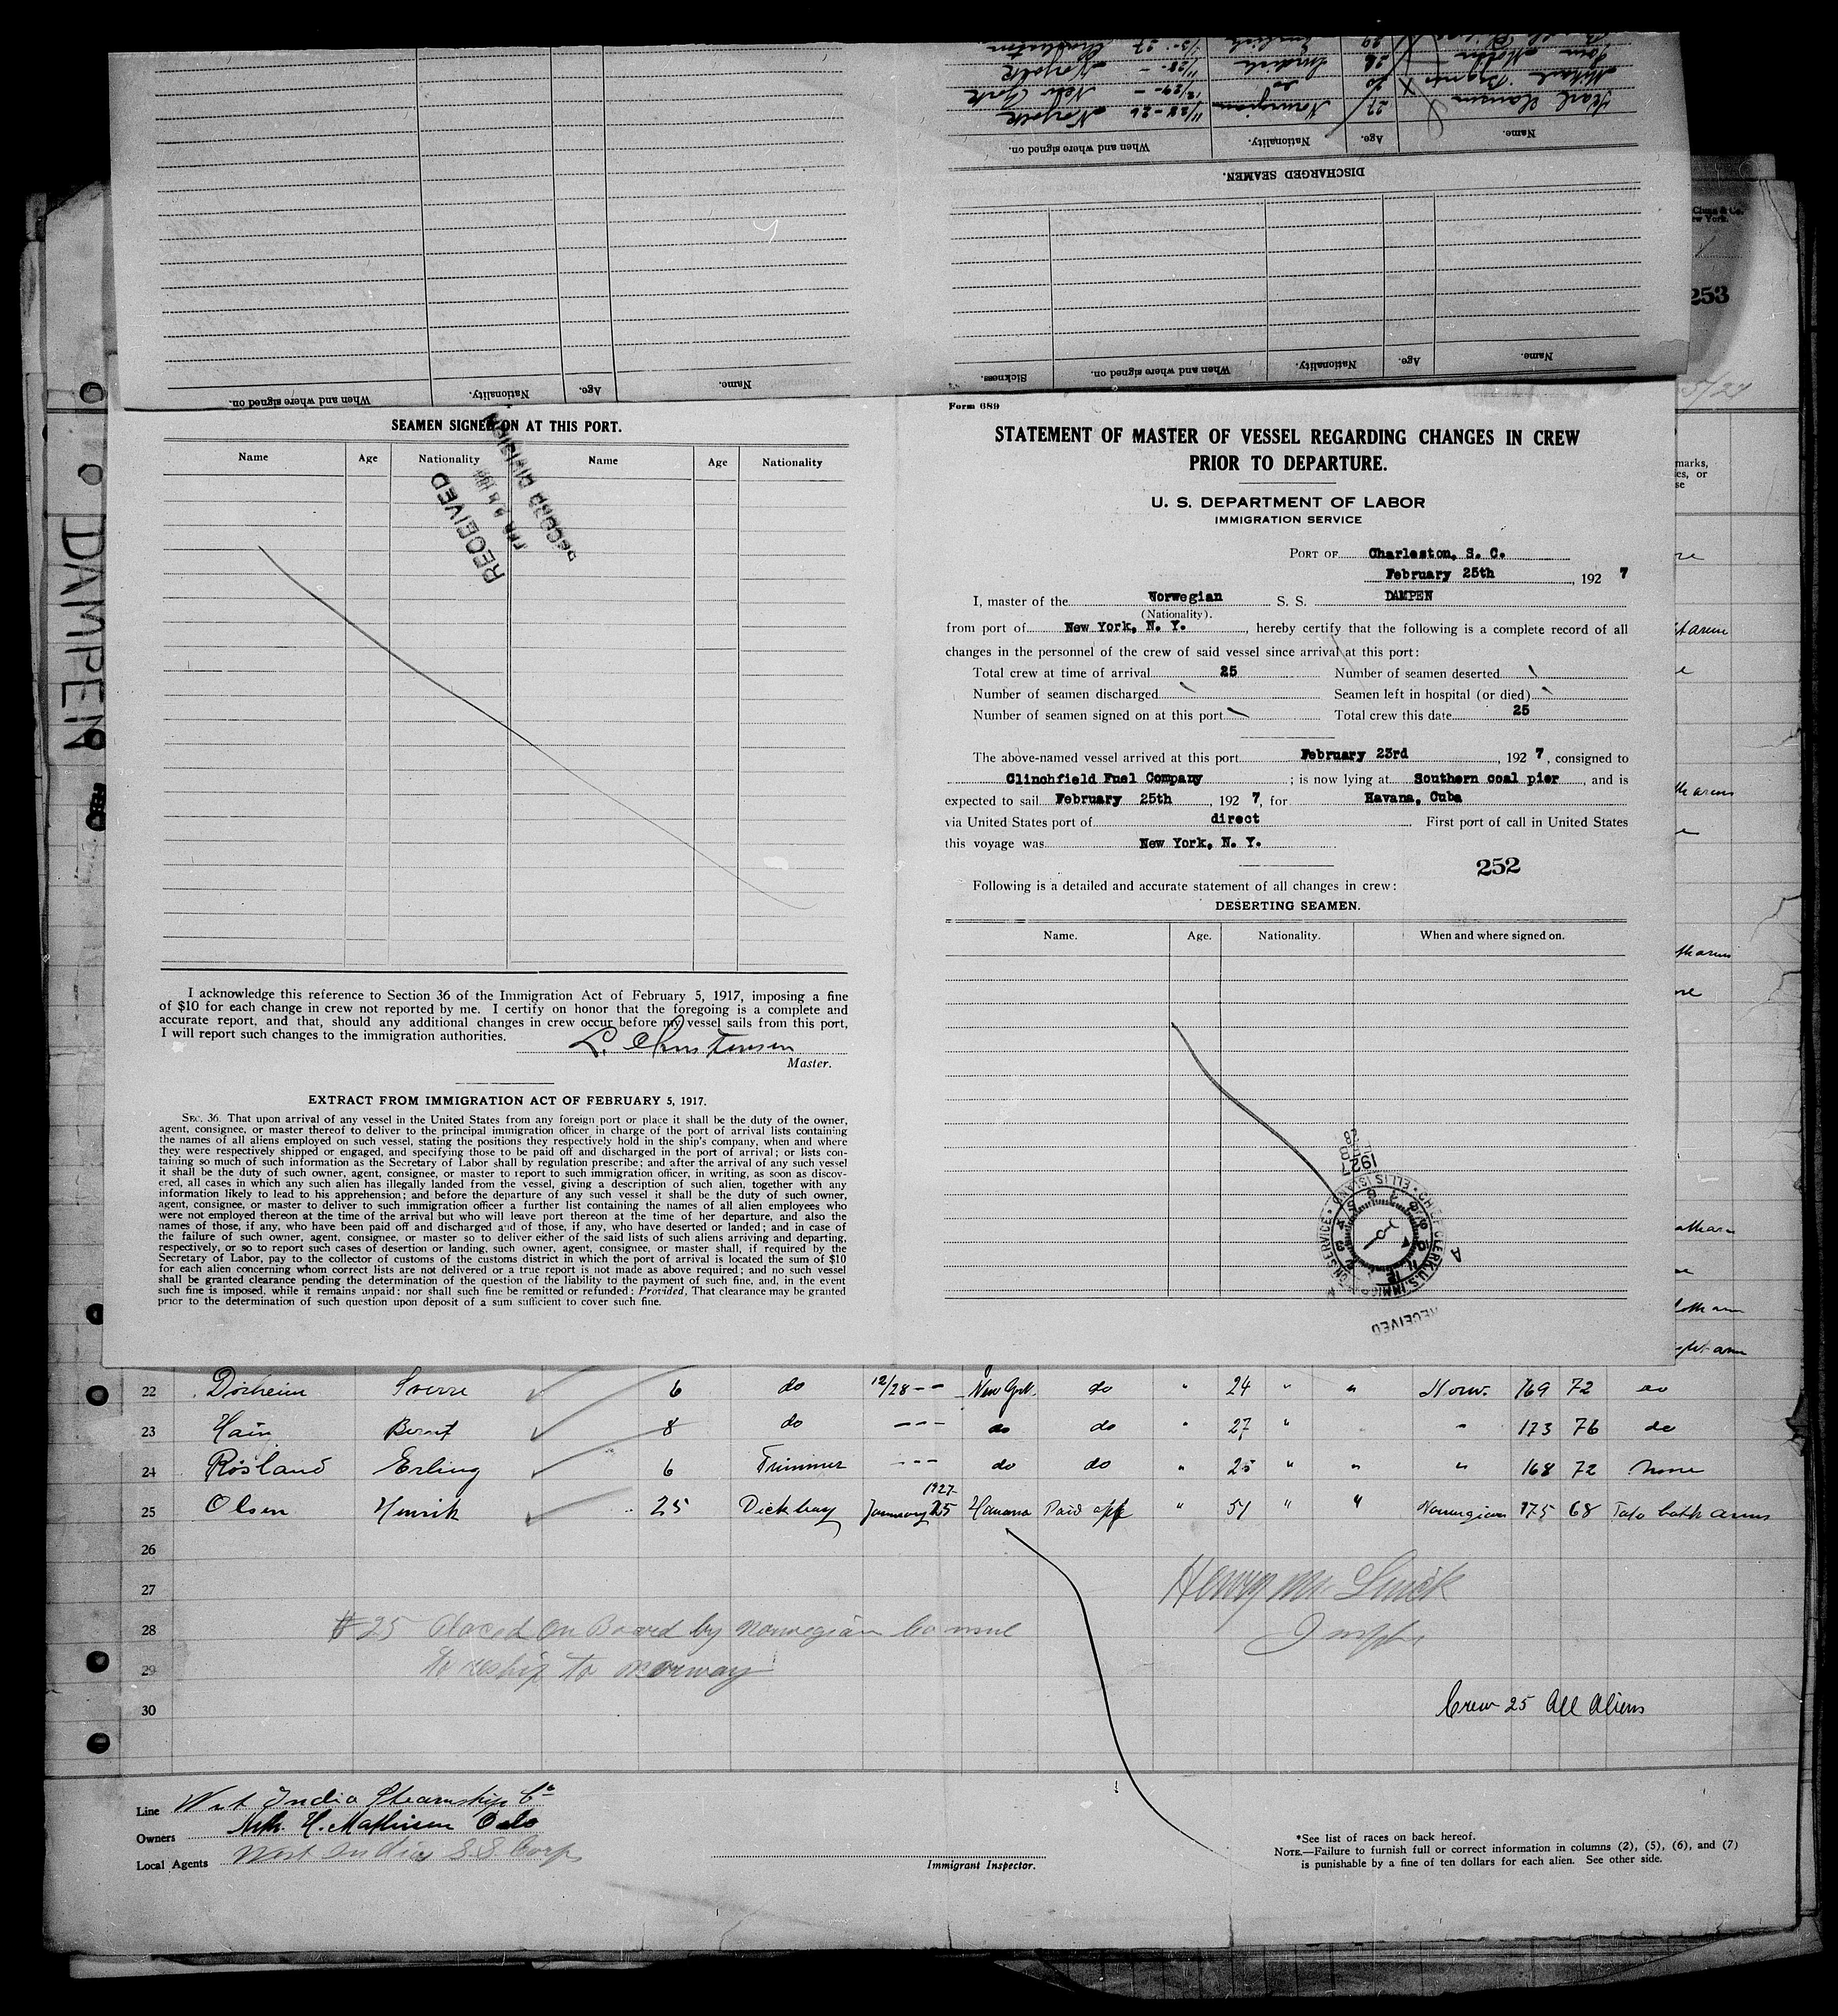 Karl Hansen 27 Norwegian 11/28-26 Norfolk
20 do 12/29 - New York
26 Swedish 11/28 - Norfolk
Name. Age. Nationality. When and where signed on.
DISCHARGED SEAMEN.
Name. Age. Nationality. When and where signed on. Sickness.
Name. Age. Nationality. When and where signed on.
253
DAMPEN
SEAMEN SIGNED ON AT THIS PORT.
Name Age Nationality Name Age Nationality
RECEIVED
RECORD DIVISION
I acknowledge this reference to Section 36 of the Immigration Act of February 5, 1917, imposing a fine
of $10 for each change in crew not reported by me. I certify on honor that the foregoing is a complete and
accurate report, and that, should any additional changes in crew occur before my vessel sails from this port,
I will report such changes to the immigration authorities.
L. Christensen
Master.
EXTRACT FROM IMMIGRATION ACT OF FEBRUARY 5, 1917.
SEC. 36. That upon arrival of any vessel in the United States from any foreign port or place it shall be the duty of the owner,
agent, consignee, or master thereof to deliver to the principal immigration officer in charge of the port of arrival lists containing
the names of all aliens employed on such vessel, stating the positions they respectively hold in the ship's company, when and where
they were respectively shipped or engaged, and specifying those to be paid off and discharged in the port of arrival; or lists con-
taining so much of such information as the Secretary of Labor shall by regulation prescribe; and after the arrival of any such vessel
it shall be the duty of such owner, agent, consignee, or master to report to such immigration officer, in writing, as soon as discov-
ered, all cases in which any such alien has illegally landed from the vessel, giving a description of such alien, together with any
information likely to lead to his apprehension; and before the departure of any such vessel it shall be the duty of such owner,
agent, consignee, or master to deliver to such immigration officer a further list containing the names of all alien employees who
were not employed thereon at the time of the arrival but who will leave port thereon at the time of her departure, and also the
names of those, if any, who have been paid off and discharged and of those, if any, who have deserted or landed; and in case of
the failure of such owner, agent, consignee, or master so to deliver either of the said lists of such aliens arriving and departing,
respectively, or so to report such cases of desertion or landing, such owner, agent, consignee, or master shall, if required by the
Secretary of Labor, pay to the collector of customs of the customs district in which the port of arrival is located the sum of $10
for each alien concerning whom correct lists are not delivered or a true report is not made as above required; and no such vessel
shall be granted clearance pending the determination of the question of the liability to the payment of such fine, and, in the event
such fine is imposed, while it remains unpaid; nor shall such fine be remitted or refunded: Provided, That clearance may be granted
prior to the determination of such question upon deposit of a sum sufficient to cover such fine.
Form 689
STATEMENT OF MASTER OF VESSEL REGARDING CHANGES IN CREW
PRIOR TO DEPARTURE.
U. S. DEPARTMENT OF LABOR
IMMIGRATION SERVICE
PORT OF Charleston, S. C.
February 25th, 1927
I, master of the Norwegian S. S. DAMPEN
(Nationality).
from port of New York, N. Y., hereby certify that the following is a complete record of all
changes in the personnel of the crew of said vessel since arrival at this port:
Total crew at time of arrival 25 Number of seamen deserted
Number of seamen discharged Seamen left in hospital (or died)
Number of seamen signed on at this port Total crew this date 25
The above-named vessel arrived at this port February 23rd, 1927, consigned to
Clinchfield Fuel Company; is now lying at Southern coal pier, and is
expected to sail February 25th, 1927, for Havana, Cuba
via United States port of direct First port of call in United States
this voyage was New York, N. Y.
252
Following is a detailed and accurate statement of all changes in crew:
DESERTING SEAMEN.
Name. Age. Nationality. When and where signed on.
28
FEB
1927
CHIEF CLERK, U.S. IMMIGRATION SERVICE ELLIS ISLAND
RECEIVED
22 Dörheim Sverre 6 do 12/28 -- New York do " 24 " " Norw. 169 72 do
23 Hain Bernt 8 do --- do do " 27 " " 173 76 do
24 Rösland Erling 6 Trimmer --- do do " 25 " " " 168 72 None
25 Olsen Henrik 25 Dickbay 1927 January 25 Havana Paid off " 51 " " Norwegian 175 68 Tato both arms
26
27
28
29
30
Henry M
#25 Placed On Board by Norwegian Consul
to reship to Norway
Crew 25 All Aliens
Line West India Steamship Co
Owners H. Mathiesen Oslo
Local Agents West India S.S. Corp
Immigrant Inspector.
*See list of races on back hereof.
NOTE.—Failure to furnish full or correct information in columns (2), (5), (6), and (7)
is punishable by a fine of ten dollars for each alien. See other side.